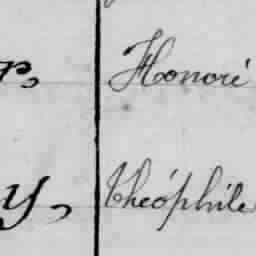 r, Honoré
y, théophile